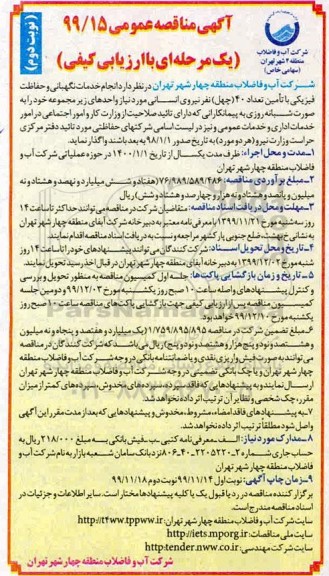 آگهی مناقصه عمومی ۹۹/۱۵
(یک مرحله‌ای با ارزیابی کیفی)
(نوبت دوم)
شرکت آب و فاضلاب
منطقه ۴ شهر تهران
(سهامی خاص)
شرکت آب و فاضلاب منطقه چهار شهر تهران در نظر دارد انجام خدمات نگهبانی و حفاظت
فیزیکی با تأمین تعداد ۴۰ (چهل) نفر نیروی انسانی مورد نیاز واحدهای زیر مجموعه خود را به
صورت شبانه روزی به پیمانکارانی که دارای تائید صلاحیت از وزارت کار و امور اجتماعی در امور
خدمات اداری و خدمات عمومی و نیز در لیست اسامی شرکتهای حفاظتی مورد تائید دفتر مرکزی
حراست وزارت نیرو (هر دو مورد) به تاریخ صدور ۹۸/۱/۱ به بعد باشند واگذار نماید.
۱ـ مدت و محل اجراء: ظرف مدت یکسال از تاریخ ۱۴۰۰/۱/۱ در حوزه عملیاتی شرکت آب و
فاضلاب منطقه چهار شهر تهران
۲ـ مبلغ برآوردی مناقصه: (هفتاد و شش میلیارد و نهصد و هشتاد و نه
میلیون و پانصد و هشتاد و نه هزار و چهارصد و هشتاد و شش) ریال
۳ـ مهلت و محل دریافت اسناد مناقصه: متقاضیان شرکت در مناقصه می‌توانند حداکثر تا ساعت ۱۴
روز سه‌شنبه مورخ ۱۳۹۹/۱۱/۲۱ با معرفی‌نامه معتبر به دبیرخانه شرکت آبفای منطقه چهار شهر تهران
مراجعه و نسبت به دریافت اسناد مناقصه اقدام نمایند.
۴ـ تاریخ و محل تحویل اسناد: شرکت کنندگان می‌توانند پیشنهادهای خود را تا ساعت ۱۴ روز
شنبه مورخ ۱۳۹۹/۱۲/۰۲ به دبیرخانه آبفای منطقه چهار شهر تهران در قبال اخذ رسید تحویل نمایند.
۵ـ تاریخ و زمان بازگشایی پاکت‌ها: جلسه اول کمیسیون مناقصه به منظور تحویل و بررسی
و کنترل پیشنهادهای واصله ساعت ۱۰ صبح روز یکشنبه مورخ ۹۹/۱۲/۰۳ و دومین جلسه
کمیسیون مناقصه پس از ارزیابی کیفی جهت بازگشایی پاکت‌های مناقصه ساعت ۱۰ صبح روز
یکشنبه مورخ ۹۹/۱۲/۱۰ خواهد بود.
۶ـ مبلغ تضمین شرکت در مناقصه ۱/۷۵۹/۸۹۵/۸۹۵ (یک میلیارد و هفتصد و پنجاه و نه میلیون
و هشتصد و نود و پنج هزار و هشتصد و نود و پنج) ریال می‌باشد که شرکت کنندگان در مناقصه
می‌توانند به صورت فیش واریزی نقدی و یا ضمانتنامه بانکی در وجه شرکت آب و فاضلاب منطقه
چهار شهر تهران و یا چک بانکی تضمینی در وجه شرکت آب و فاضلاب منطقه چهار شهر تهران
ارسال نمایند به پیشنهادهایی که فاقد سپرده، سپرده‌های مخدوش، سپرده‌های کمتر از میزان
مقرر، چک شخصی و نظایر آن ترتیب اثر داده نخواهد شد.
۷ـ به پیشنهادهای فاقد امضاء، مشروط، مخدوش و پیشنهادهایی که بعد از مدت مقرر این آگهی
واصل شود مطلقاً ترتیب اثر داده نخواهد شد.
۸ـ مدارک مورد نیاز: الف ـ معرفی نامه کتبی ـ ب ـ فیش بانکی به مبلغ ۲۱۸/۰۰۰ ریال به
نزد بانک سامان شعبه بازار به نام شرکت آب و
فاضلاب منطقه چهار شهر تهران
۹ـ زمان چاپ آگهی: نوبت اول ۹۹/۱۱/۱۴ نوبت دوم ۹۹/۱۱/۱۸
برگزار کننده مناقصه در رد یا قبول یک یا کلیه پیشنهادها مختار است. سایر اطلاعات و جزئیات در
اسناد مناقصه مندرج است.
سایت شرکت آب و فاضلاب منطقه چهار شهر تهران: http://t4ww.tppww.ir
سایت ملی مناقصات: http://iets.mporg.ir
سایت شرکت مهندسی: http:tender.nww.co.ir
شرکت آب و فاضلاب منطقه چهار شهر تهران